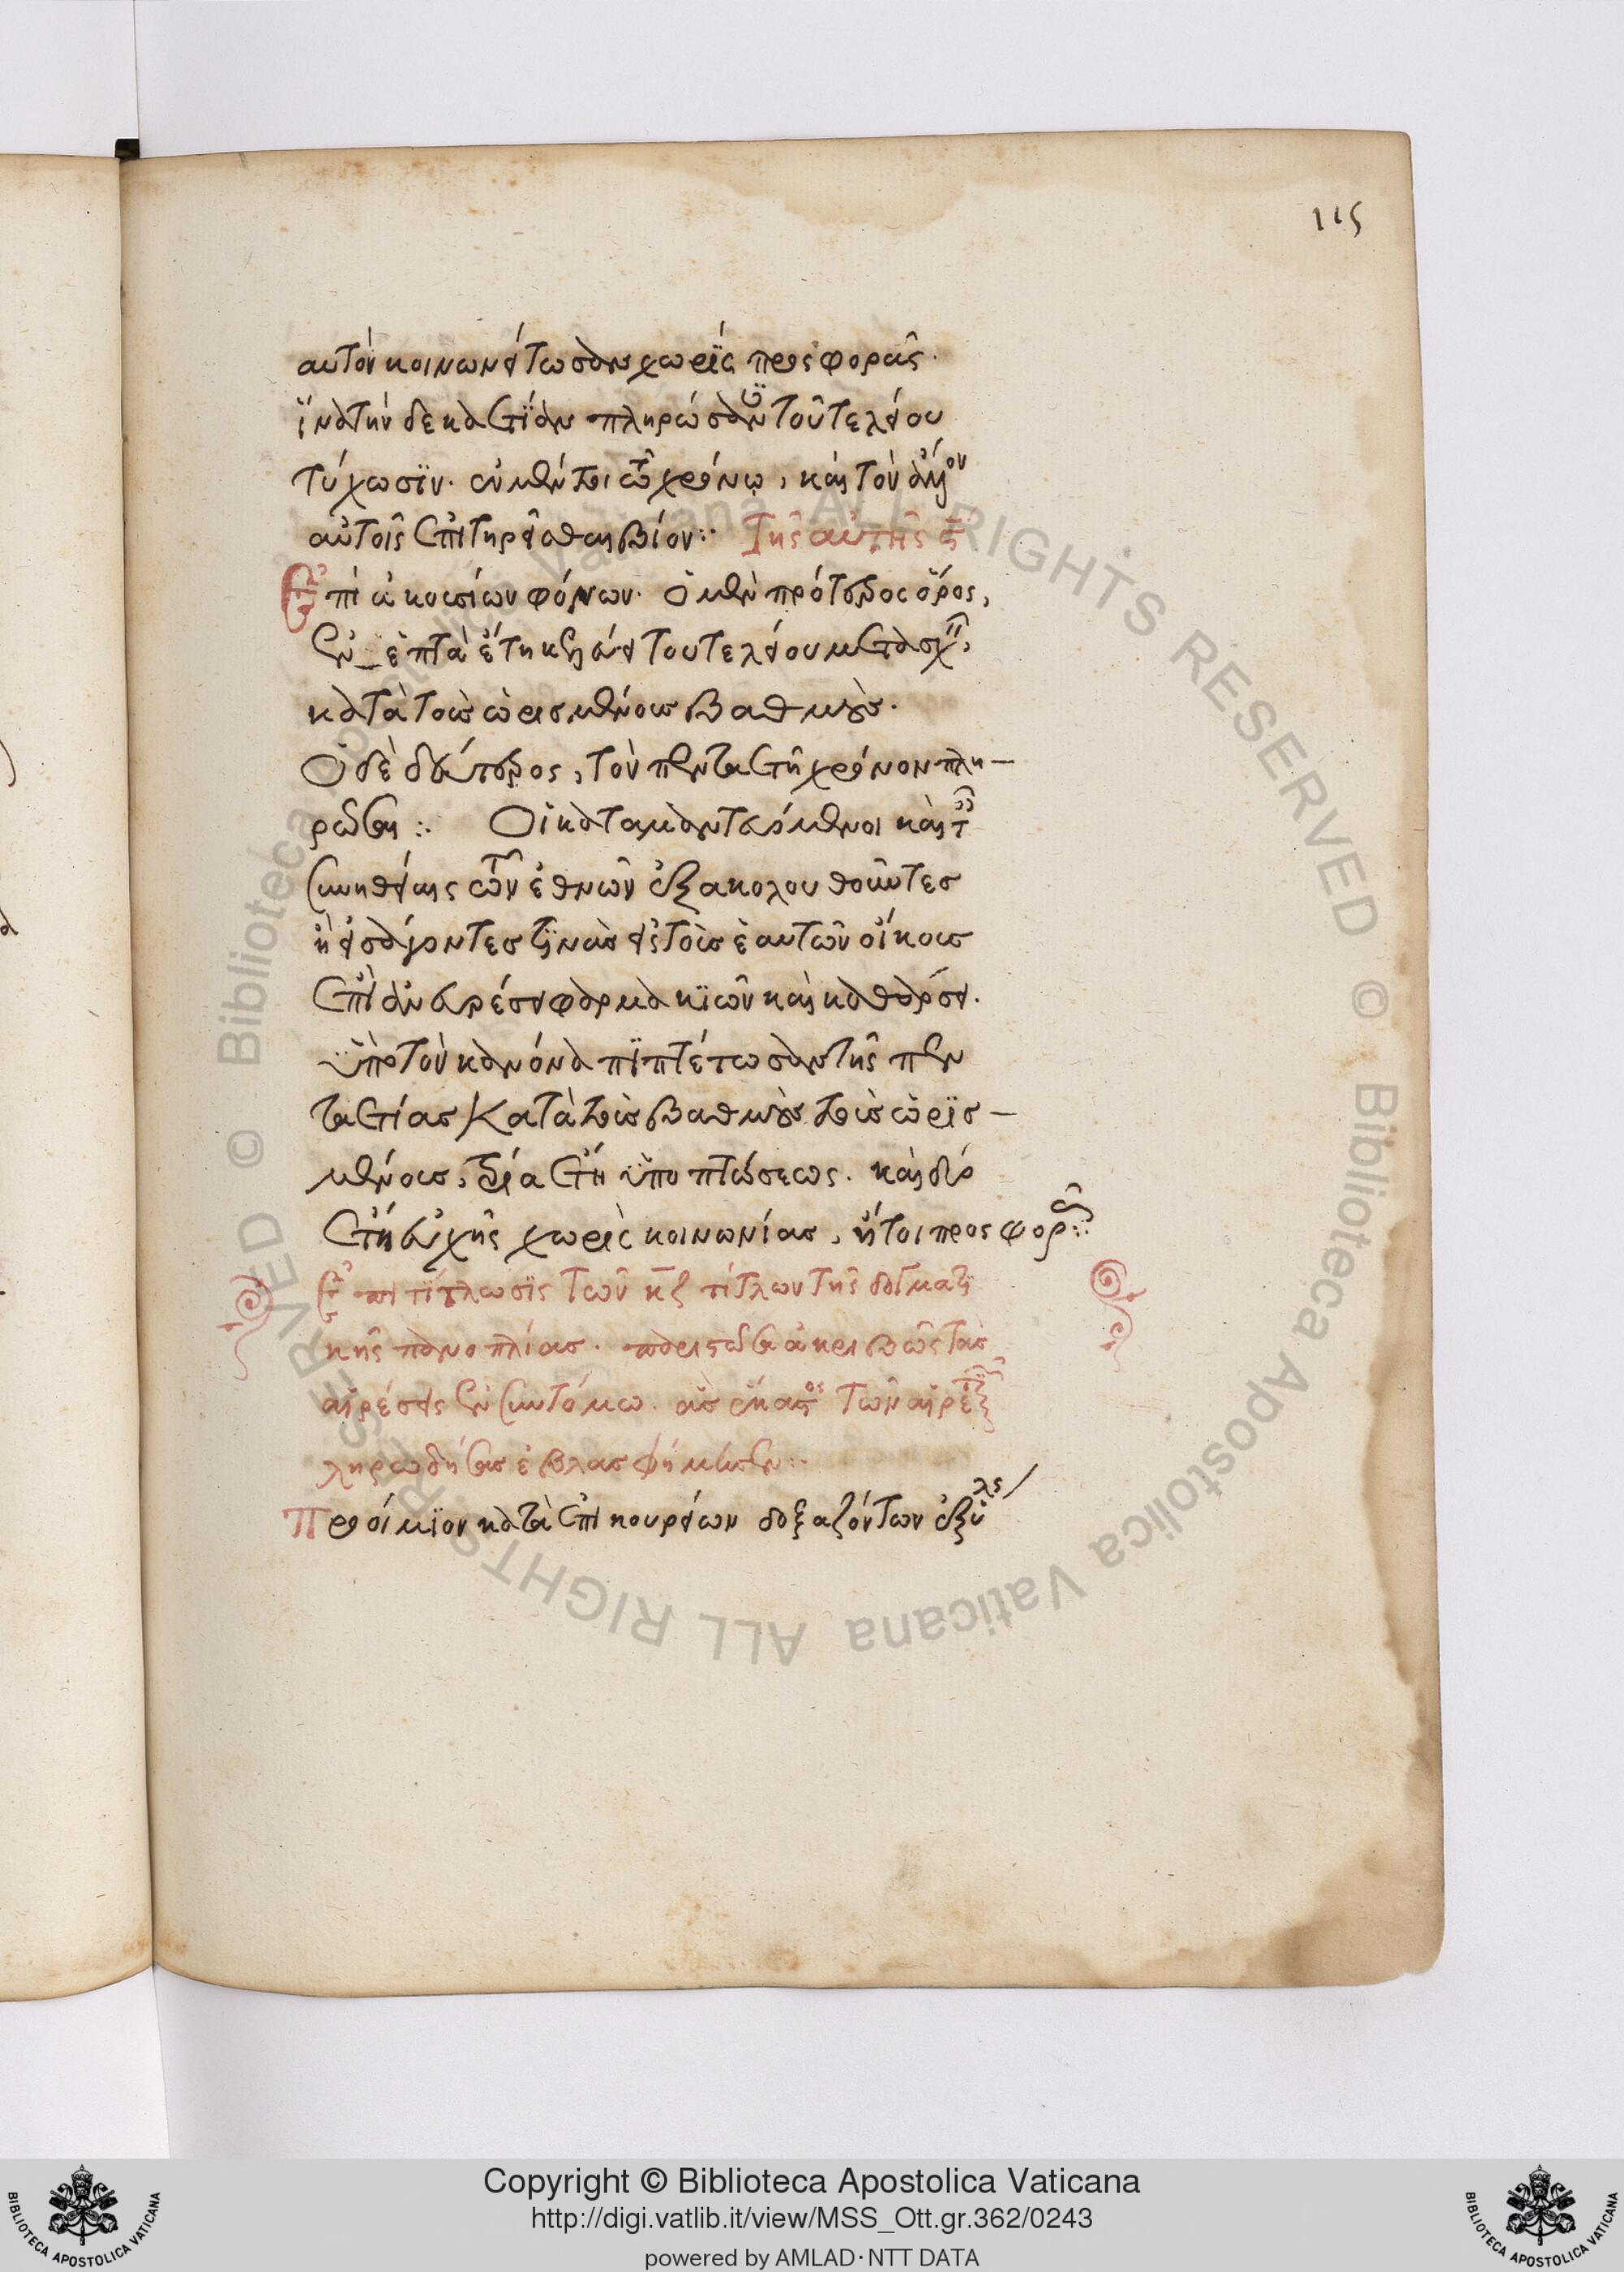 115
αὐτὸν κοινωνείτωσαν χωρὶς προσφορᾶς.
ἵνα τὴν δεκαετίαν πληρώσαντες τοῦ τελείου
τύχωσιν. ἐν μέντοι τῷ χρόνῳ, καὶ τὸν
αὐτοῖς ἐπιτηρεῖσθαι βίον:· Τῆς αὐτῆς
Ἐπὶ ἀκουσίων φόνων. ὁ μὲν πρότερος ὅρος,
ἐν ἑπτὰ ἔτη κελεύει τοῦ τελείου μετασχεῖν,
κατὰ τοὺς ὡρισμένους βαθμούς.
Ὁ δὲ δεύτερος, τὸν πενταετῆ χρόνον πλη-
ρῶσαι :· Οἱ καταμαντευόμενοι καὶ τ
συνηθείαις τῶν ἐθνῶν ἐξακολουθοῦντες
ἢ εἰσάγοντές τινας εἰς τοὺς ἑαυτῶν οἴκους
ἐπὶ ἀνευρέσει φαρμακιῶν καὶ καθάρσει.
ὑπὸ τὸν κανόνα πιπτέτωσαν τῆς πεν
ταετίας κατὰ τοὺς βαθμοὺς τοὺς ὡρισ-
μένους, τρία ἔτη ὑποπτώσεως. καὶ δύο
ἔτη εὐχῆς χωρὶς κοινωνίας, ἤτοι προσφορᾶς:·
τῶν κζ τίτλων τῆς δογματι
κῆς πανοπλίας. παριστῶσα ἀκριβῶς τὰς
αἱρέσεις ἐν συντόμω. ἃς ἕκαστος τῶν αἱρε
ληρωδήσας ἐβλασφήμησεν:·
Προοίμιον κατὰ ἐπικουρείων δοξαζόντων ἐξ ὕλης
Copyright © Biblioteca Apostolica Vaticana
http://digi.vatlib.it/view/MSS_Ott.gr.362/0243
powered by AMLAD·NTT DATA
BIBLIOTECA APOSTOLICA VATICANA
BIBLIOTECA APOSTOLICA VATICANA
© Biblioteca Apostolica Vaticana ALL RIGHTS RESERVED © Biblioteca Apostolica Vaticana ALL RIGHTS RESERVED